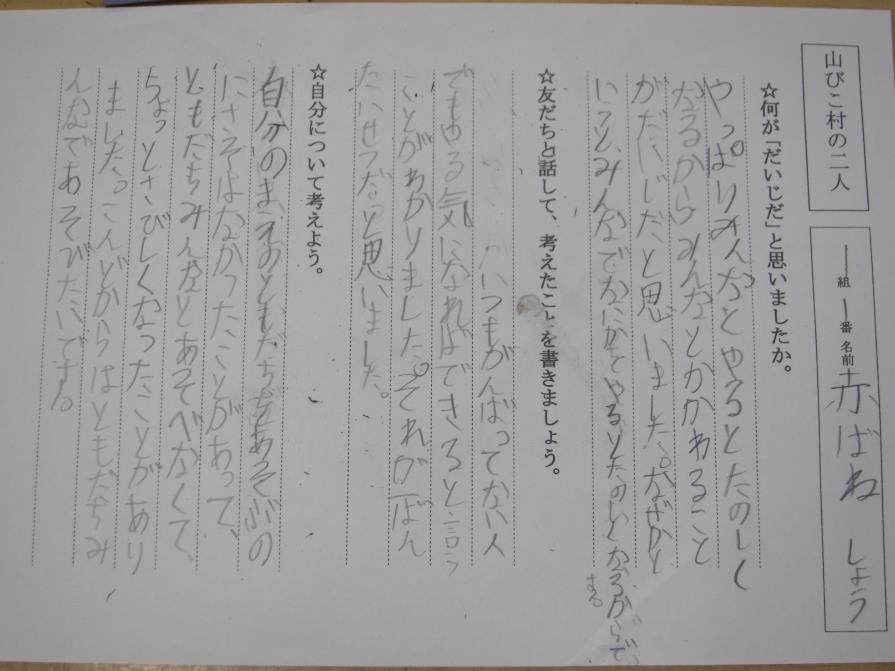 山びこ村の二人
一組一番名前赤ばねしょう
☆何が「だいじだ」と思いましたか。
やっぱりみんなとやるとたのしく
なるからみんなとかかわること
がだいじだと思いました。なぜかと
いうと、みんなでなにかをやるとたのしくなるからで
す。
☆友だちと話して、考えたことを書きましょう。
いつもがんばってない人
でもやる気になればできると言う
ことがわかりました。それがばん
たいせつだと思いました。
☆自分について考えよう。
自分のまえのともだちをあそぶの
にさそはなかったことがあって、
ともだちみんなとあそべなくて、
ちょっとさびしくなったことがあり
ました。こんどからはともだちみ
んなであそびたいです。